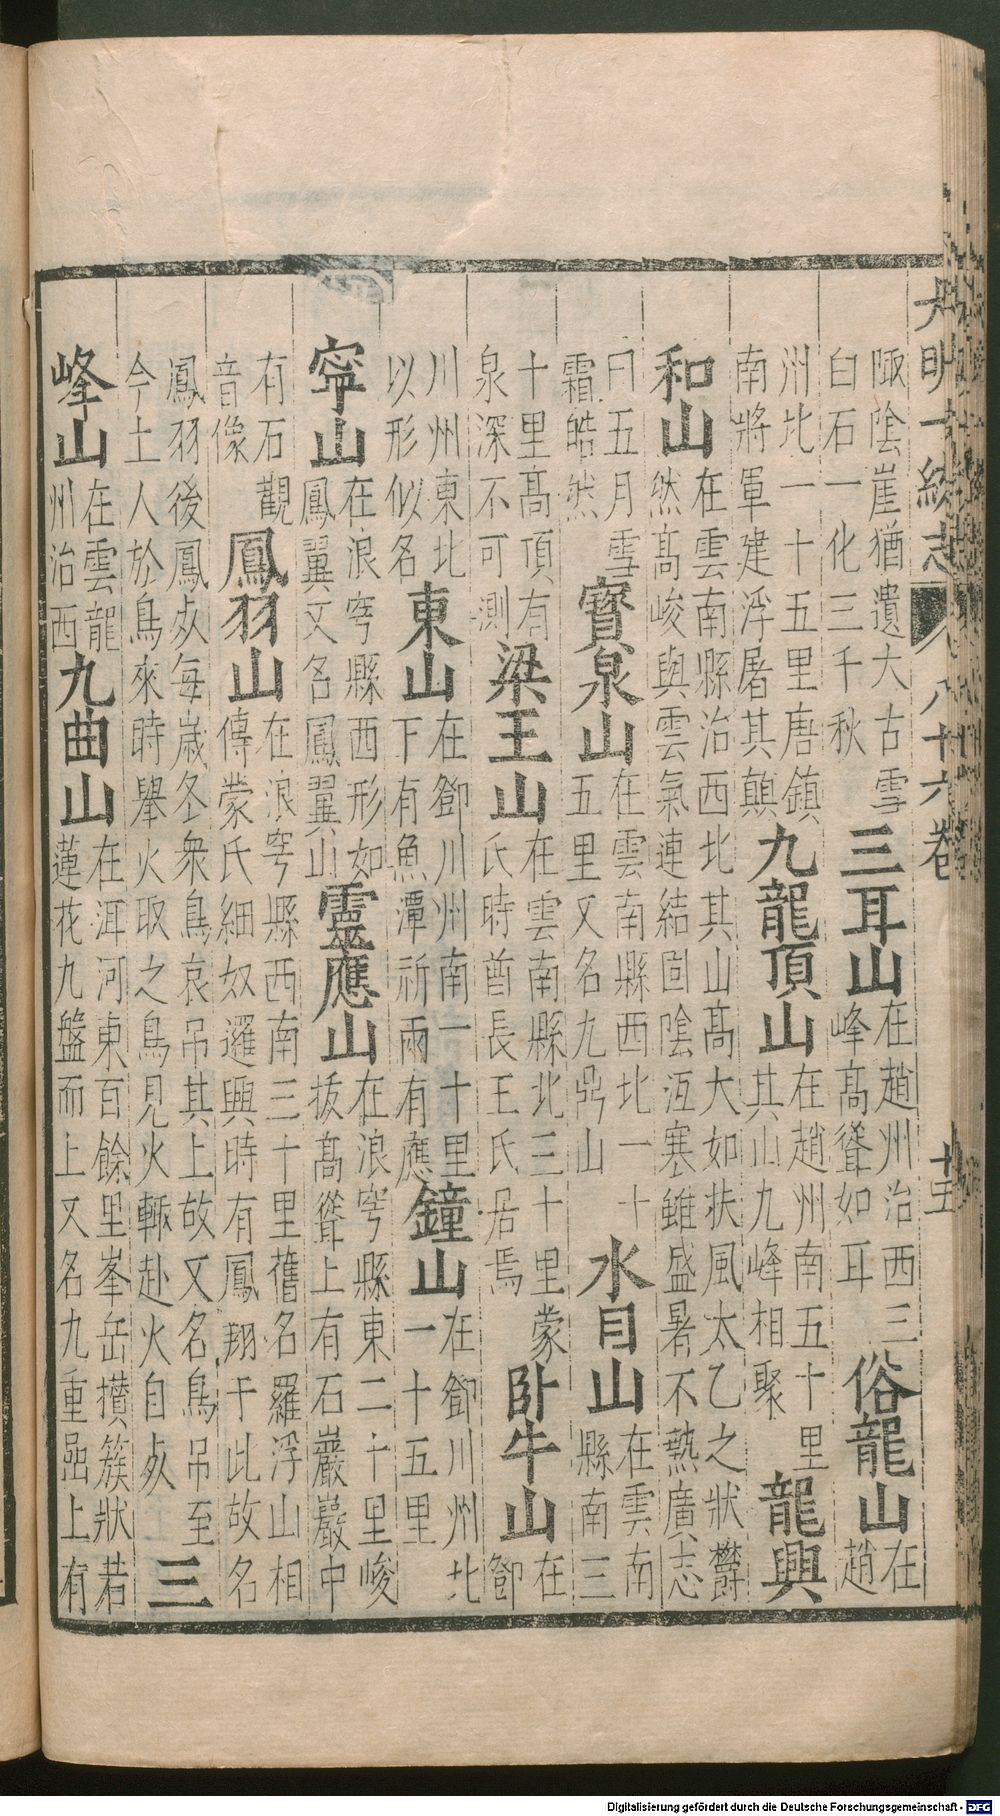 大明一統志 八十六卷 十五
陬陰崖猶遺大古雪白石一化三千秋三耳山在趙州治西三峰高聳如耳俗龍山在趙
州北一十五里唐鎮南將軍建浮屠其顛九龍頂山在趙州南五十里其山九峰相聚龍興
和山在雲南縣治西北其山高大如扶風太乙之狀欝然高峻與雲氣連結固陰沍寒雖盛暑不熱廣志
曰五月雪霜皓然寳泉山在雲南縣西北一十五里又名九鼎山水目山在雲南縣南三
十里高頂有泉深不可測梁王山在雲南縣北三十里蒙氏時酋長王氏居焉卧牛山在鄧
川州東北以形似名東山在鄧川州南一十里下有魚潭祈雨有應鐘山在鄧川州北一十五里
寧山在浪穹縣西形如鳳翼又名鳳翼山靈應山在浪穹縣東二十里峻拔高聳上有石巖巖中
有石觀音像鳳羽山在浪穹縣西南三十里舊名羅浮山相傳蒙氏細奴邏興時有鳳翔于此故名
鳳羽後鳳死每歳冬衆鳥哀吊其上故又名鳥吊至今土人於鳥來時舉火取之鳥見火輒赴火自死三
峰山在雲龍州治西九曲山在洱河東百餘里峯岳攅簇狀若蓮花九盤而上又名九重嵒上有
Digitalisierung gefördert durch die Deutsche Forschungsgemeinschaft - DFG